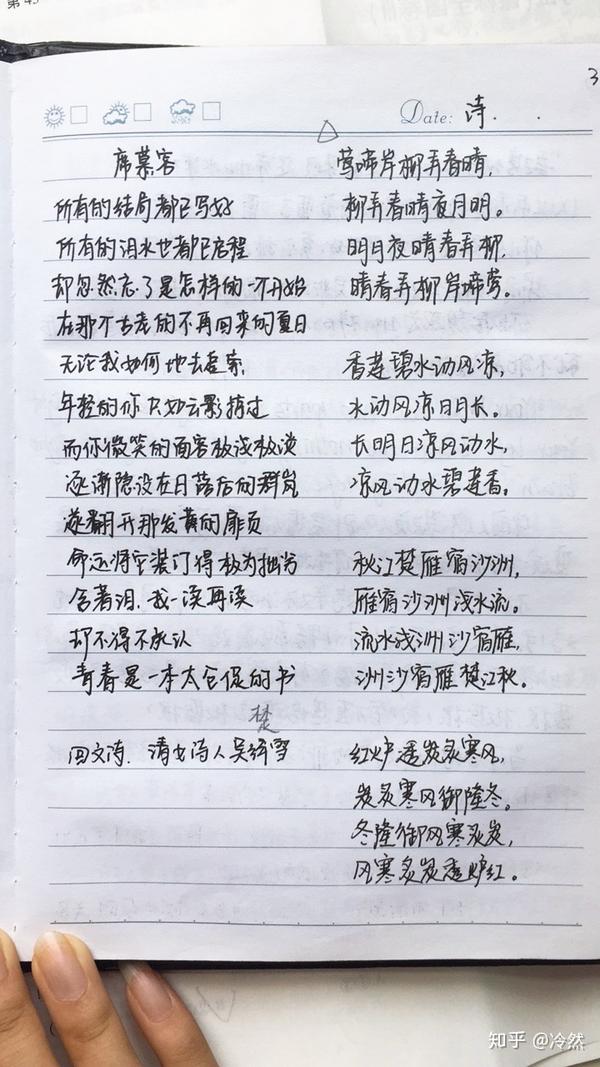 3
Date: 诗.
席慕容
所有的结局都已写好
所有的泪水也都已启程
却忽然忘了是怎样的一个开始
在那个古老的不再回来的夏日
无论我如何地去追索
年轻的你只如云影掠过
而你微笑的面容极浅极淡
逐渐隐没在日落后的群岚
遂翻开那发黄的扉页
命运将它装订得极为拙劣
含著泪,我一读再读
却不得不承认
青春是一本太仓促的书
楚
回文诗. 清女诗人吴绛雪
莺啼岸柳弄春晴,
柳弄春晴夜月明。
明月夜晴春弄柳,
晴春弄柳岸啼莺。
香莲碧水动风凉,
水动风凉日月长。
长明日凉风动水,
凉风动水碧莲香。
秋江楚雁宿沙洲,
雁宿沙洲浅水流。
流水浅洲沙宿雁,
洲沙宿雁楚江秋。
红炉透炭炙寒风,
炭炙寒风御隆冬。
冬隆御风寒炙炭,
风寒炙炭透炉红。
知乎 @冷然